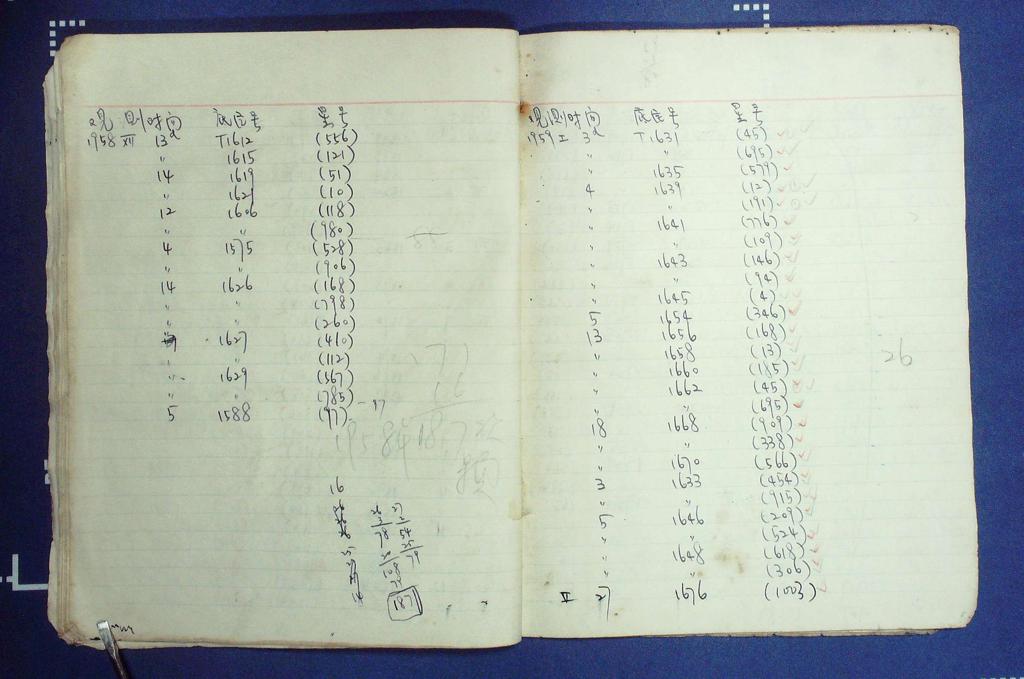 观测时间 底片号 星号
1958 XII 13d T1612 (556)
〃 1615 (121)
14 1619 (51)
〃 1621 (10)
12 1606 (118)
〃 〃 (980)
4 1575 (528)
〃 〃 (906)
14 1626 (168)
〃 〃 (798)
〃 〃 (260)
1627 (410)
〃 (112)
〃 1629 (567)
〃 〃 (785)
5 1588 (97) -17
77
16
1958年187次
16
187
观测时间 底片号 星号
1959 I 3d T1631 (45)
〃 〃 (695)
〃 1635 (579)
4 1639 (12)
〃 〃 (191)
〃 1641 (776)
〃 〃 (109)
〃 1643 (146)
〃 〃 (94)
〃 1645 (4)
5 1654 (346)
13 1656 (168)
〃 1658 (13)
〃 1660 (185)
〃 1662 (45)
〃 〃 (695)
18 1668 (909)
〃 〃 (338)
〃 1670 (566)
3 1633 (454)
〃 〃 (915)
5 1646 (209)
〃 〃 (524)
〃 1648 (618)
〃 〃 (306)
II 27 1676 (1003)
26